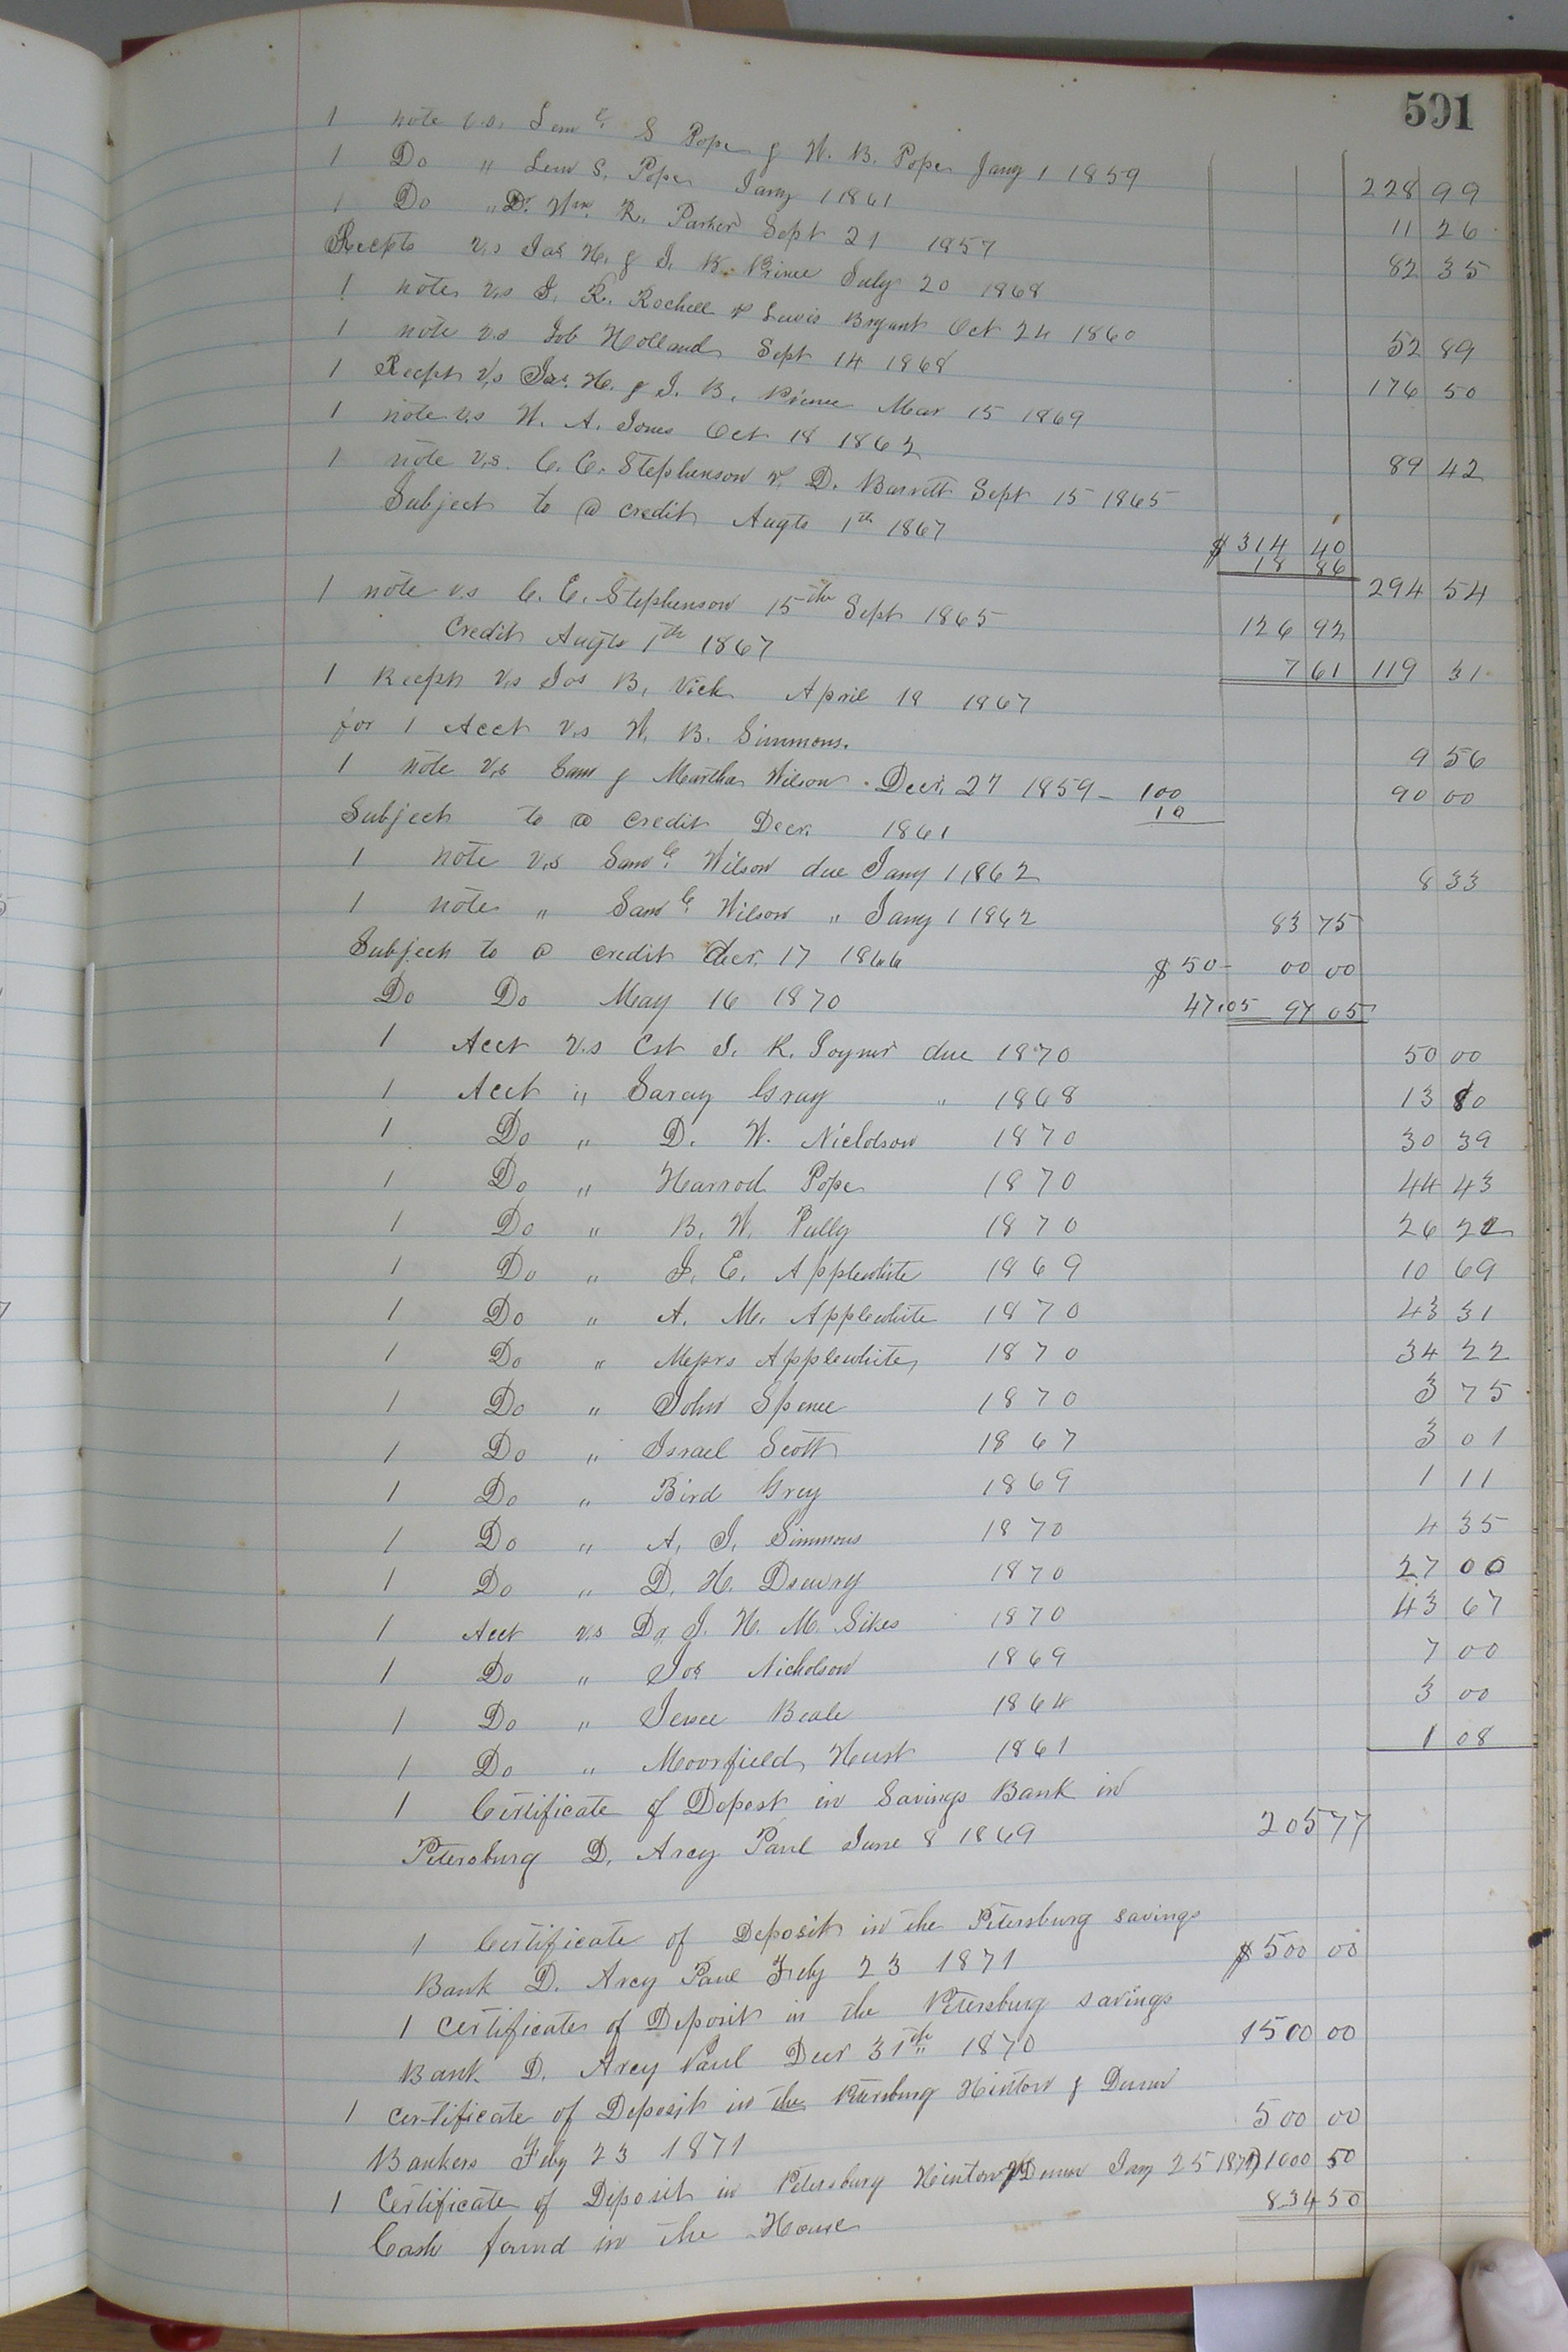 591
1 note v.s. Leml. S Pope & W. B. Pope Jany 1 1859 228 99
1 Do " Lem S. Pope Jany 1 1861 11 26
1 Do " Dr. Wm. R. Parker Sept 21 1857 82 35
Recepts v.s Jas H. & J. B. Prince July 20 1868
1 note v.s J. R. Rochell & Lewis Bryant Oct 24 1860 52 89
1 note v.s Job Holland Sept 14 1868 176 50
1 Recpt v.s Jas. H. & J. B. Prince Mar 15 1869
1 note v.s W. A. Jones Oct 18 1862 89 42
1 note v.s. C. C. Stephenson & D. Barrett Sept 15 1865 $ 314 40
Subject to @ credit Augts 1th 1867 18 86 294 54
1 note v.s C. C. Stephenson 15th Sept 1865 126 92
Credit Augts 1th 1867 7 61 119 31
1 Recpt v.s Jos B. Vick April 19 1867
for 1 Acct v.s W. B. Simmons. 9 56
1 note v.s Sam & Martha Wilson Decr. 27 1859 - 100 90 00
Subject to @ credit Decr. 1861 10
1 note v.s Saml. Wilson due Jany 1 1862 8 33
1 note " Saml. Wilson " Jany 1 1862 83 75
Subject to @ credit Decr. 17 1866 $ 50 - 00 00
Do Do May 16 1870 47.05 97 05
1 Acct v.s Est J. R. Joyner due 1870 50 00
1 Acct " Saray Gray " 1868 13 80
1 Do " D. W. Nicholson 1870 30 39
1 Do " Harrod Pope 1870 44 43
1 Do " B. W. Pully 1870 26 22
1 Do " J. E. Applewhite 1869 10 69
1 Do " A. M. Applewhite 1870 43 31
1 Do " Messrs Applewhite 1870 34 22
1 Do " John Spence 1870 3 75
1 Do " Israel Scott 1867 3 01
1 Do " Bird Grey 1869 1 11
1 Do " A. J. Simmons 1870 4 35
1 Do " D. H. Drewry 1870 27 00
1 Acct v.s Dr J. H. M. Sikes 1870 43 67
1 Do " Jos Nicholson 1869 7 00
1 Do " Jesse Beale 1864 3 00
1 Do " Moorfield Hurst 1861 1 08
1 Certificate of Depost in Savings Bank in
Petersburg D. Arcy Paul June 8 1869 205 77
1 Certificate of Deposit in the Petersburg savings
Bank D. Arcy Paul Feby 23 1871 $ 500 00
1 Certificate of Deposit in the Petersburg savings
Bank D. Arcy Paul Decr 31th 1870 1500 00
1 Certificate of Deposit in the Petersburg Hinton & Dunn
Bankers Feby 23 1871 500 00
1 Certificate of Deposit in Petersburg Hinton & Dunn Jany 25 1871 1000 50
Cash found in the House 834 50